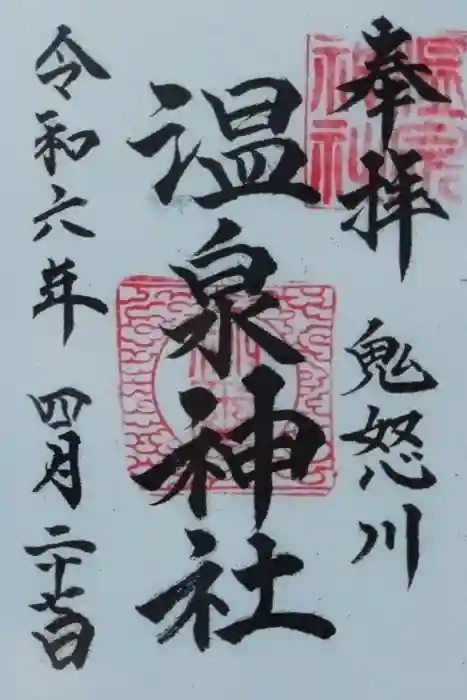 奉拝 鬼怒川
温泉神社
令和六年 四月二十七日